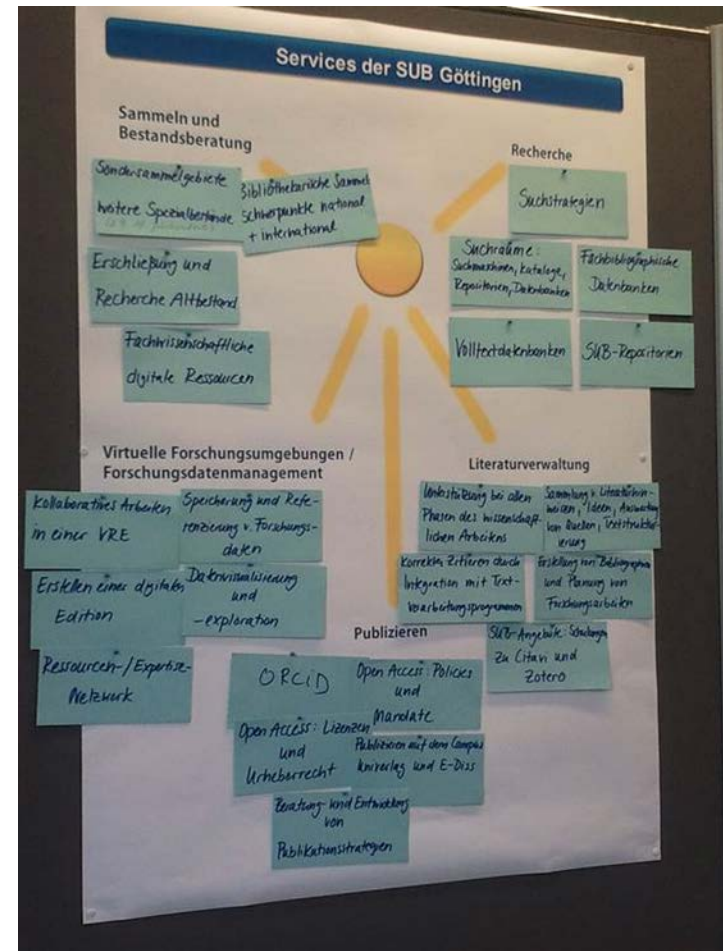 Services der SUB Göttingen
Sammeln und
Bestandsberatung
Sondersammelgebiete
weitere Spezialbestände
Bibliothekarische Sammel
schwerpunkte national
+ international
Erschließung und
Recherche Altbestand
Fachwissenschaftliche
digitale Ressourcen
Recherche
Suchstrategien
Suchräume:
Suchmaschinen, Kataloge,
Repositorien, Datenbanken
Fachbibliographische
Datenbanken
Volltextdatenbanken
SUB-Repositorien
Virtuelle Forschungsumgebungen /
Forschungsdatenmanagement
Kollaboratives Arbeiten
in einer VRE
Speicherung und Refe-
renzierung v. Forschungs-
daten
Erstellen einer digitalen
Edition
Datenvisualisierung
und
-exploration
Ressourcen-/Expertise-
Netzwerk
Literaturverwaltung
Unterstützung bei allen
Phasen des wissenschaft-
lichen Arbeitens
Sammlung v. Literaturhin-
weisen, Ideen, Auswertung
von Quellen, Textstruktu-
rierung
Korrektes Zitieren durch
Integration mit Text-
verarbeitungsprogrammen
Erstellung von Bibliographien
und Planung von
Forschungsarbeiten
SUB-Angebote: Schulungen
zu Citavi und
Zotero
Publizieren
ORCiD
Open Access: Policies
und
Mandate
Open Access: Lizenzen
und
Urheberrecht
Publizieren auf dem Campus
Univerlag und E-Diss
Beratung und Entwicklung
von
Publikationsstrategien